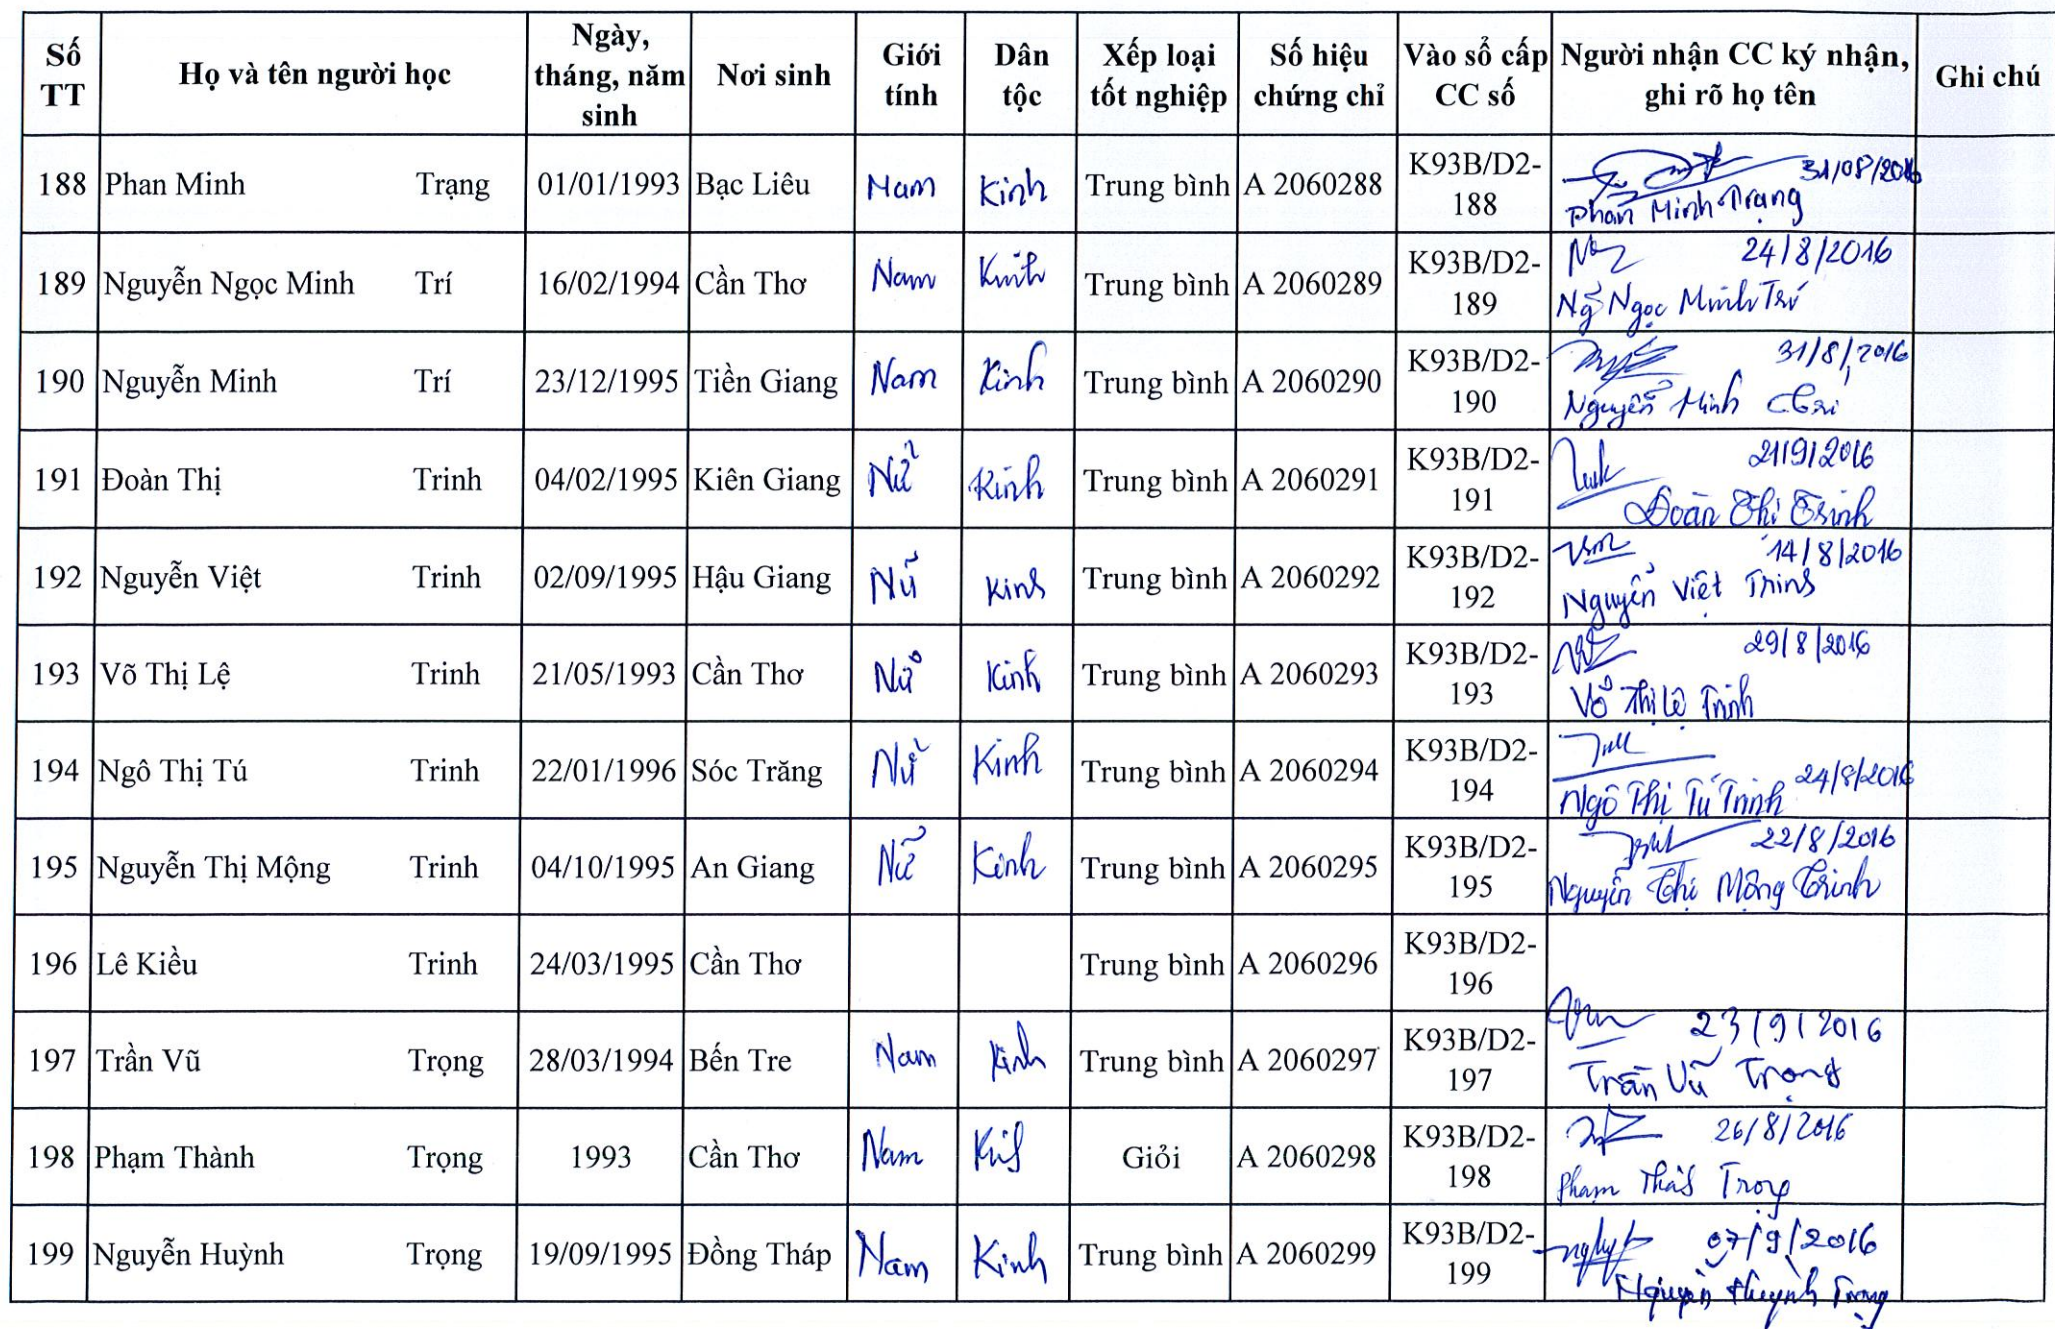 Số TT | Họ và tên người học | Ngày, tháng, năm sinh | Nơi sinh | Giới tính | Dân tộc | Xếp loại tốt nghiệp | Số hiệu chứng chỉ | Vào sổ cấp CC số | Người nhận CC ký nhận, ghi rõ họ tên | Ghi chú
188 Phan Minh Trạng 01/01/1993 Bạc Liêu Nam Kinh Trung bình A 2060288 K93B/D2-188 31/08/2016 Phan Minh Trạng
189 Nguyễn Ngọc Minh Trí 16/02/1994 Cần Thơ Nam Kinh Trung bình A 2060289 K93B/D2-189 24/8/2016 Ng Ngọc Minh Trí
190 Nguyễn Minh Trí 23/12/1995 Tiền Giang Nam Kinh Trung bình A 2060290 K93B/D2-190 31/8/2016 Nguyễn Minh Trí
191 Đoàn Thị Trinh 04/02/1995 Kiên Giang Nữ Kinh Trung bình A 2060291 K93B/D2-191 21/9/2016 Đoàn Thị Trinh
192 Nguyễn Việt Trinh 02/09/1995 Hậu Giang Nữ Kinh Trung bình A 2060292 K93B/D2-192 14/8/2016 Nguyễn Việt Trinh
193 Võ Thị Lệ Trinh 21/05/1993 Cần Thơ Nữ Kinh Trung bình A 2060293 K93B/D2-193 29/8/2016 Võ Thị Lệ Trinh
194 Ngô Thị Tú Trinh 22/01/1996 Sóc Trăng Nữ Kinh Trung bình A 2060294 K93B/D2-194 Ngô Thị Tú Trinh 24/8/2016
195 Nguyễn Thị Mộng Trinh 04/10/1995 An Giang Nữ Kinh Trung bình A 2060295 K93B/D2-195 22/8/2016 Nguyễn Thị Mộng Trinh
196 Lê Kiều Trinh 24/03/1995 Cần Thơ Trung bình A 2060296 K93B/D2-196
197 Trần Vũ Trọng 28/03/1994 Bến Tre Nam Kinh Trung bình A 2060297 K93B/D2-197 23/9/2016 Trần Vũ Trọng
198 Phạm Thành Trọng 1993 Cần Thơ Nam Kinh Giỏi A 2060298 K93B/D2-198 26/8/2016 Phạm Thành Trọng
199 Nguyễn Huỳnh Trọng 19/09/1995 Đồng Tháp Nam Kinh Trung bình A 2060299 K93B/D2-199 07/9/2016 Nguyễn Huỳnh Trọng